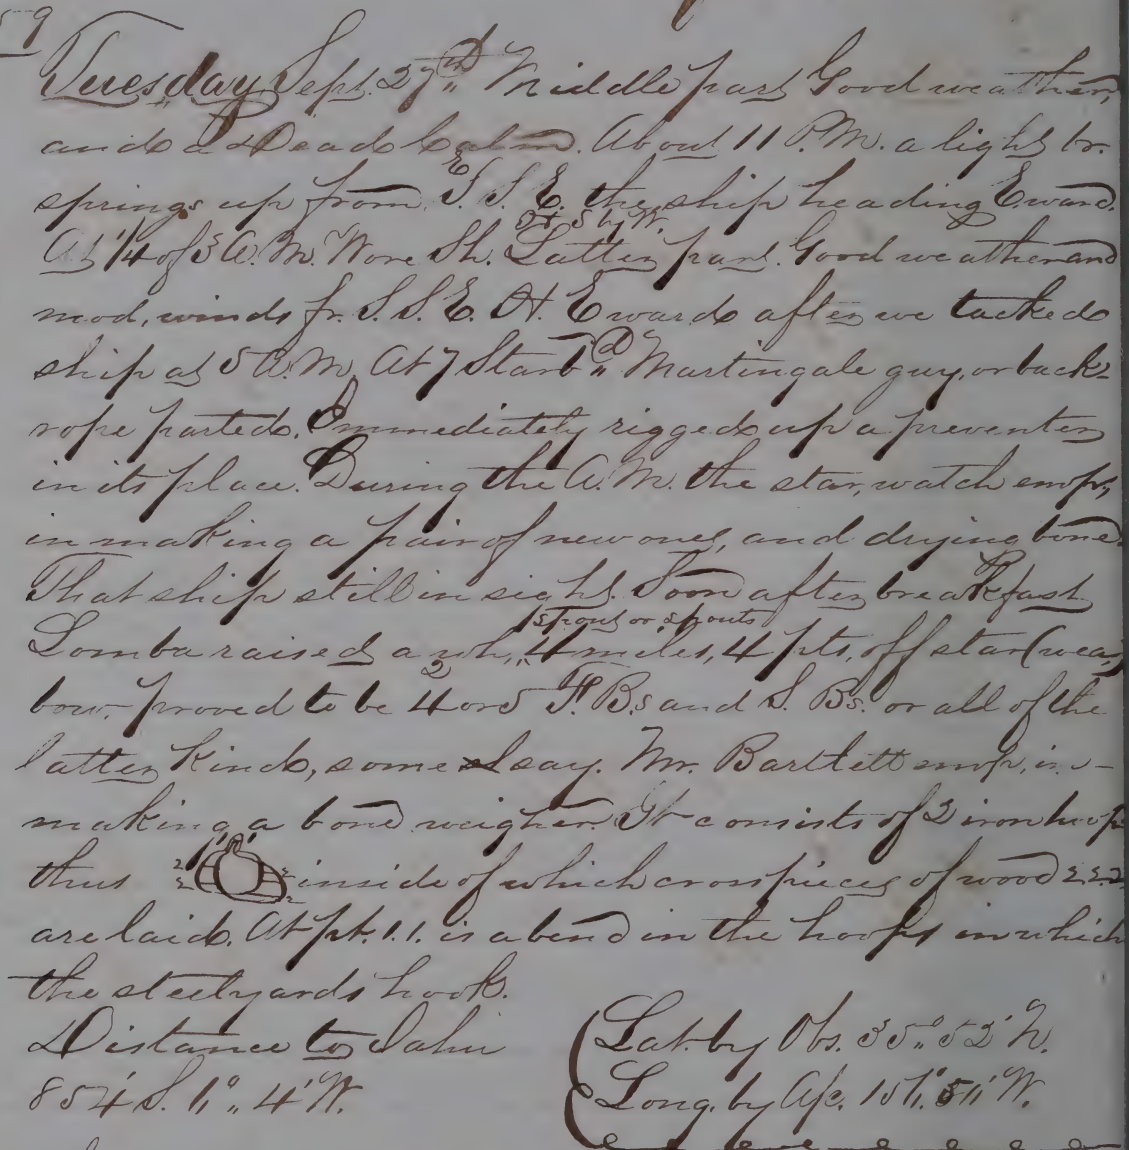 59
Tuesday Sept. 27th Middle part Good weather,
and a Dead Calm. About 11 P.M. a light br.
springs up from E S. S. E. the ship heading Eward.
H S by W.
At 1/4 of 3 A.M. Wore Sh. Latter part. Good weather and
mod, winds fr. S. S. E. H. Eward after we tacked
ship at 5 A.M. At 7 Starbd Martingale guy, or back-
rope parted. Immediately rigged up a preventer
in its place. During the A.M. the star, watch emp,
in making a pair of new ones, and drying bone.
That ship still in sight. Soon after breakfast
spout or spouts
Lomba raised a wh, 4 miles, 4 pts, off star (wea,)
2
bow. proved to be 4 or 5 F. B.s and S. Bs. or all of the
latter kind, some I say. Mr. Bartlett emp, in-
making a bone weigher. It consists of 2 iron hoops
thus inside of which cross pieces of wood 2 2 2
are laid. At pt. 1.1. is a bend in the hoops in which
the steelyards hook.
Distance to Oahu
854' S. 1,° 4' W.
Lat. by Obs. 35,° 52' N.
Long. by A/c. 157,° 51' W.